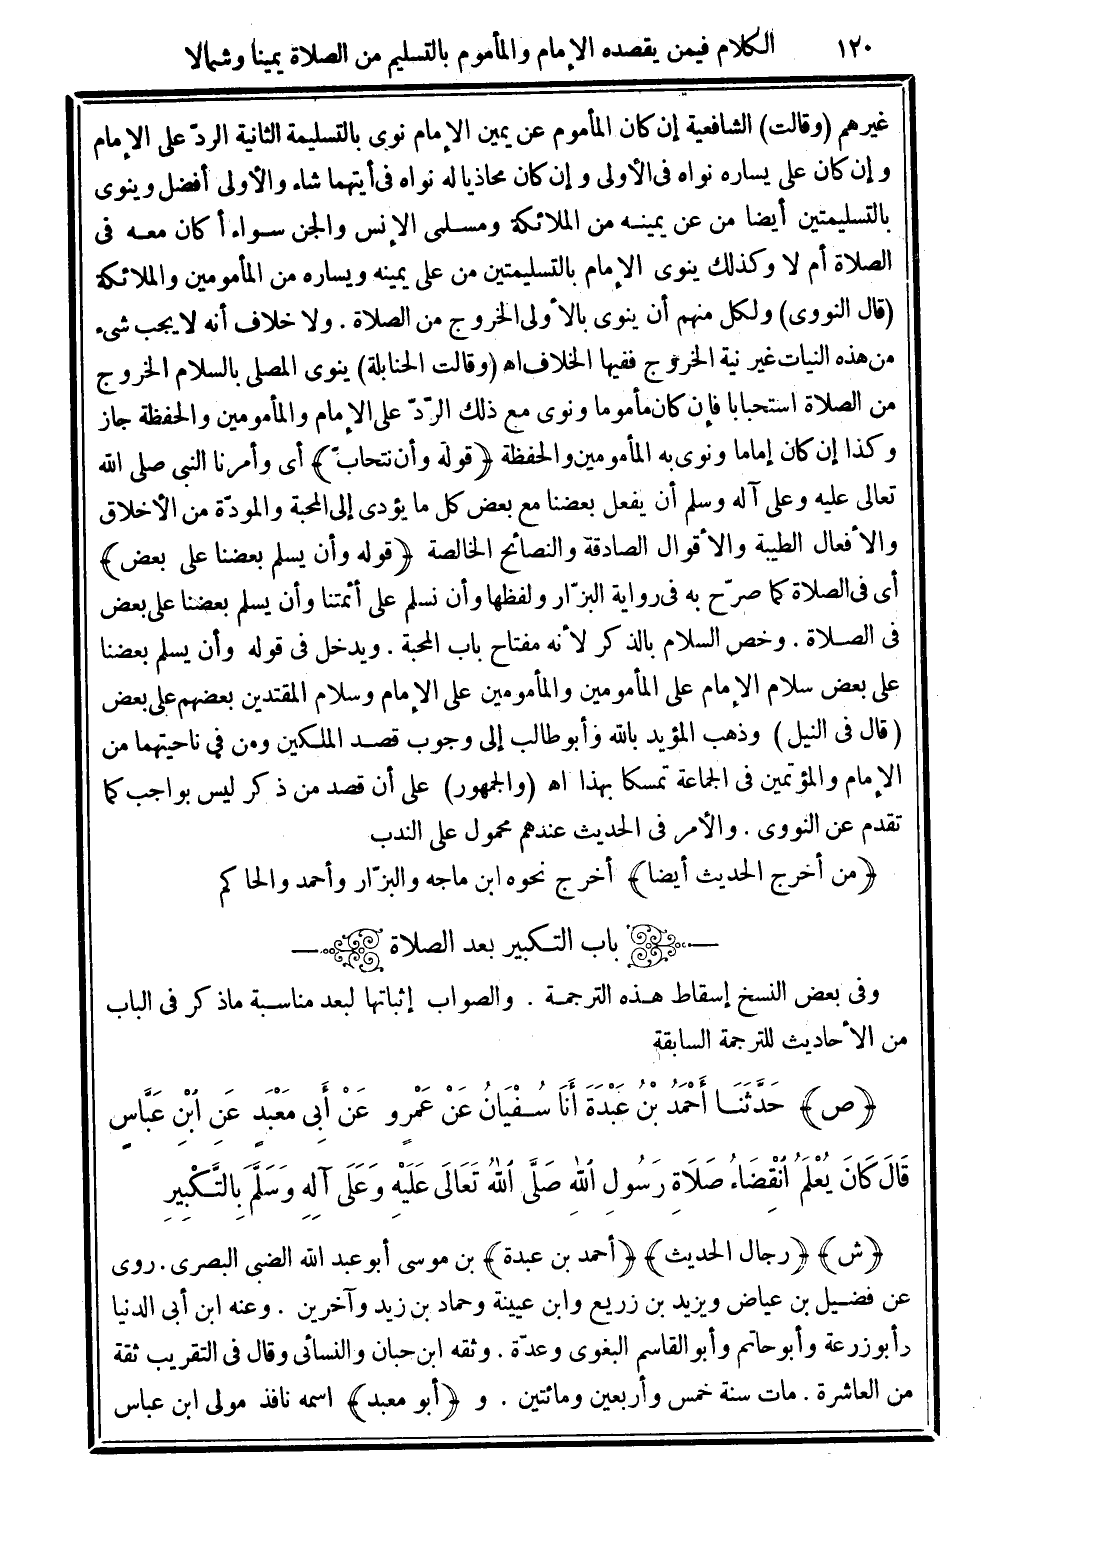 ١٢٠ الكلام فيمن يقصده الإمام والمأموم بالتسليم من الصلاة يمينا وشمالا
غيرهم (وقالت) الشافعية إن كان المأموم عن يمين الإمام نوى بالتسليمة الثانية الردّ على الإمام
وإن كان على يساره نواه فى الأولى وإن كان محاذيا له نواه فى أيتهما شاء والأولى أفضل وينوى
بالتسليمتين أيضا من عن يمينه من الملائكة ومسلمى الإنس والجن سواء أكان معه فى
الصلاة أم لا وكذلك ينوى الإمام بالتسليمتين من على يمينه ويساره من المأمومين والملائكة
(قال النووى) ولكل منهم أن ينوى بالأولى الخروج من الصلاة . ولا خلاف أنه لا يجب شىء
من هذه النيات غير نية الخروج ففيها الخلاف اه (وقالت الحنابلة) ينوى المصلى بالسلام الخروج
من الصلاة استحبابا فإن كان مأموما ونوى مع ذلك الردّ على الإمام والمأمومين والحفظة جاز
وكذا إن كان إماما ونوى به المأمومين والحفظة ﴿قوله وأن نتحابّ﴾ أى وأمرنا النبى صلى الله
تعالى عليه وعلى آله وسلم أن يفعل بعضنا مع بعض كل ما يؤدى إلى المحبة والمودّة من الأخلاق
والأفعال الطيبة والأقوال الصادقة والنصائح الخالصة ﴿قوله وأن يسلم بعضنا على بعض﴾
أى فى الصلاة كما صرّح به فى رواية البزّار ولفظها وأن نسلم على أئمتنا وأن يسلم بعضنا على بعض
فى الصلاة . وخص السلام بالذكر لأنه مفتاح باب المحبة . ويدخل فى قوله وأن يسلم بعضنا
على بعض سلام الإمام على المأمومين والمأمومين على الإمام وسلام المقتدين بعضهم على بعض
(قال فى النيل) وذهب المؤيد بالله وأبو طالب إلى وجوب قصد الملكين ومن فى ناحيتهما من
الإمام والمؤتمين فى الجماعة تمسكا بهذا اه (والجمهور) على أن قصد من ذكر ليس بواجب كما
تقدم عن النووى . والأمر فى الحديث عندهم محمول على الندب
﴿من أخرج الحديث أيضا﴾ أخرج نحوه ابن ماجه والبزّار وأحمد والحاكم
باب التكبير بعد الصلاة
وفى بعض النسخ إسقاط هذه الترجمة . والصواب إثباتها لبعد مناسبة ماذكر فى الباب
من الأحاديث للترجمة السابقة
﴿ص﴾ حَدَّثَنَا أَحْمَدُ بْنُ عَبْدَةَ أَنَا سُفْيَانُ عَنْ عَمْرٍو عَنْ أَبِى مَعْبَدٍ عَنِ ابْنِ عَبَّاسٍ
قَالَ كَانَ يُعْلَمُ انْقِضَاءُ صَلَاةِ رَسُولِ اللهِ صَلَّى اللهُ تَعَالَى عَلَيْهِ وَعَلَى آلِهِ وَسَلَّمَ بِالتَّكْبِيرِ
﴿ش﴾ ﴿رجال الحديث﴾ ﴿أحمد بن عبدة﴾ بن موسى أبو عبد الله الضبى البصرى . روى
عن فضيل بن عياض ويزيد بن زريع وابن عيينة وحماد بن زيد وآخرين . وعنه ابن أبى الدنيا
وأبو زرعة وأبو حاتم وأبو القاسم البغوى وعدّة . وثقه ابن حبان والنسائى وقال فى التقريب ثقة
من العاشرة . مات سنة خمس وأربعين ومائتين . و ﴿أبو معبد﴾ اسمه نافذ مولى ابن عباس